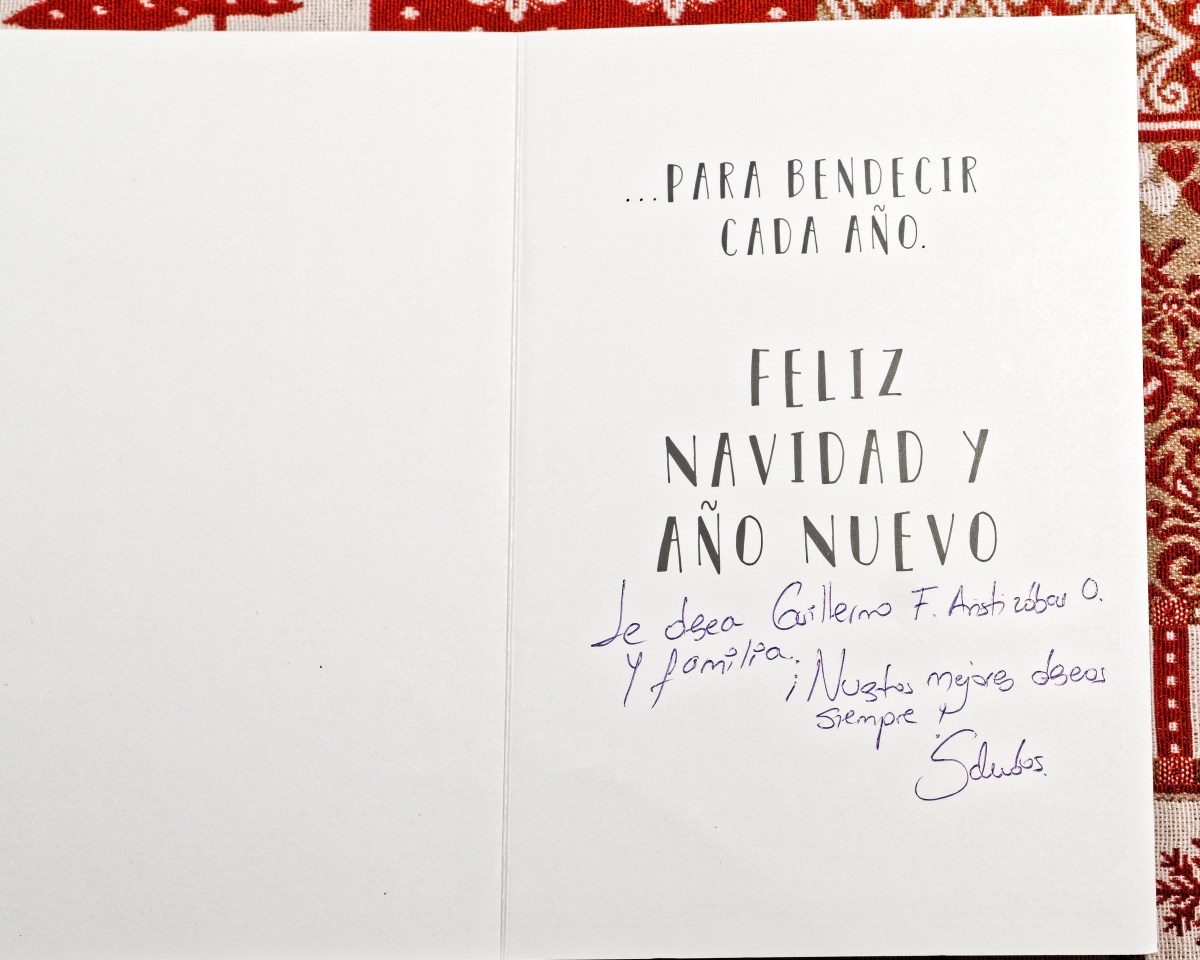 ...PARA BENDECIR
CADA AÑO.
FELIZ
NAVIDAD Y
AÑO NUEVO
Le desea Guillermo F. Aristizábal O.
y familia.
¡Nuestros mejores deseos
siempre y
Saludos.